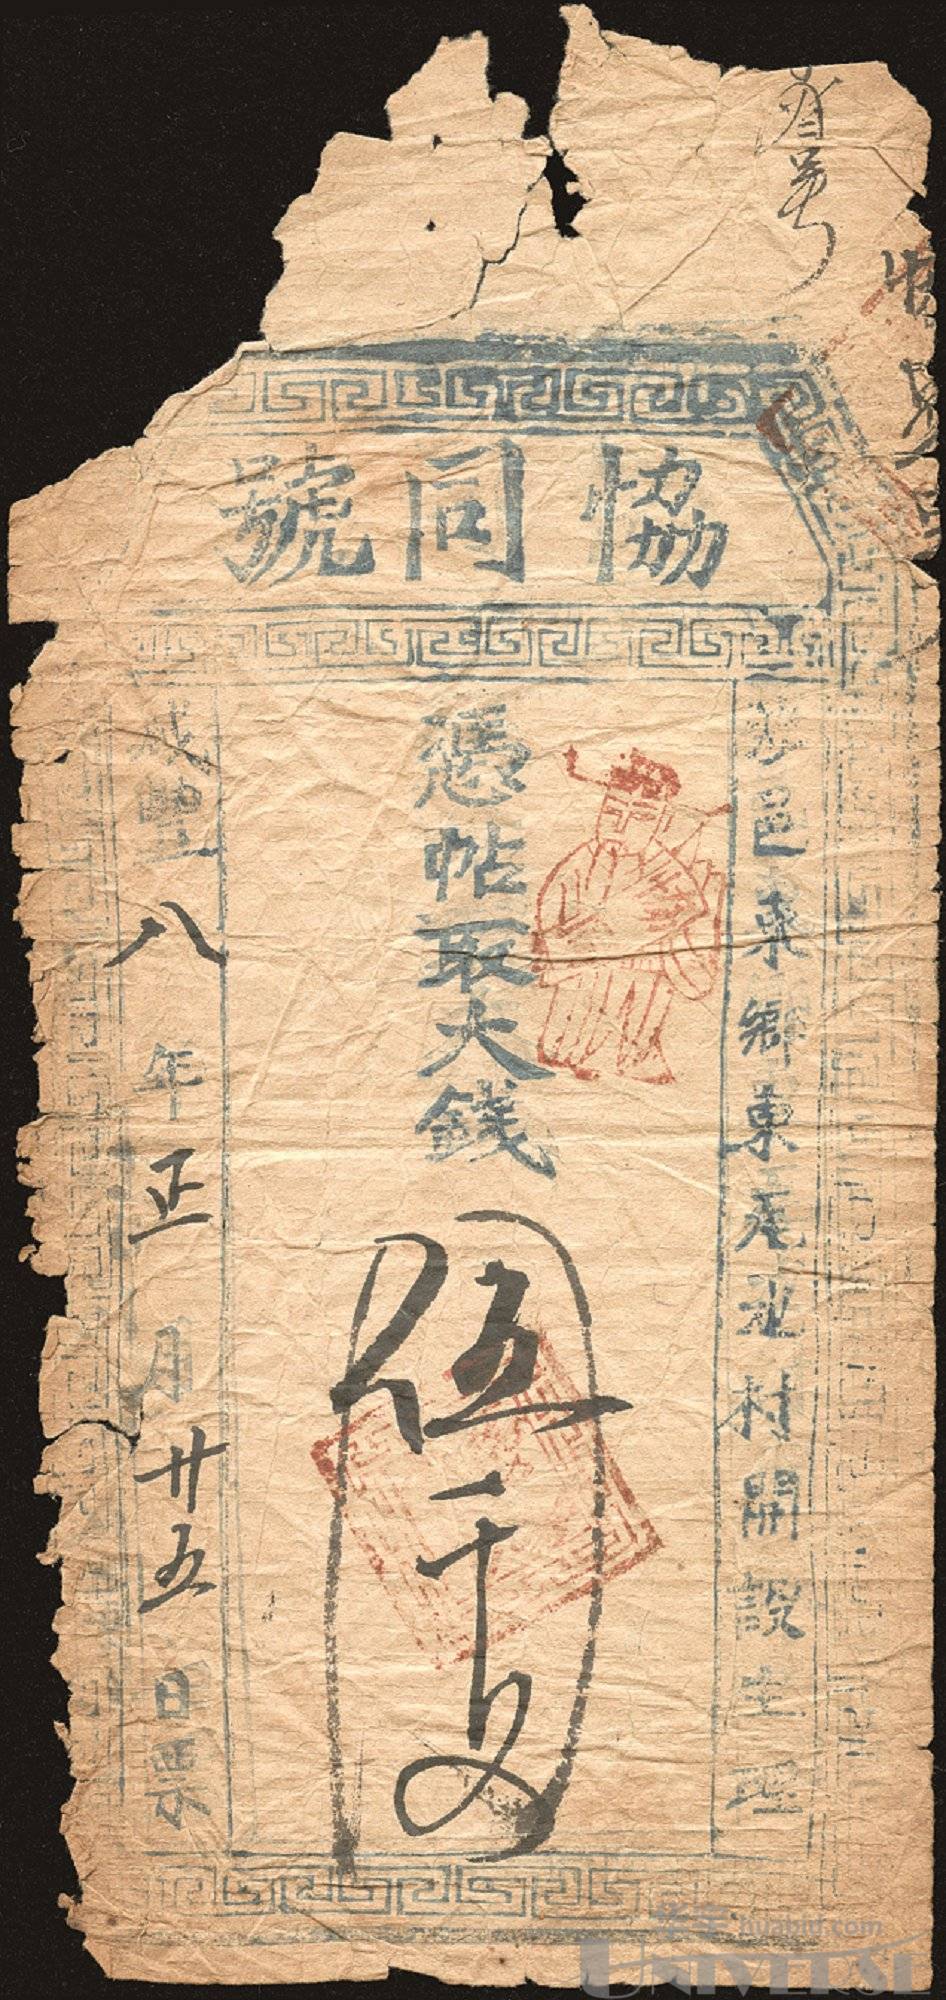 協同號
邑東鄉東尾北村開設生理
憑帖取大錢
伍千文
咸豐八年正月廿五日票
huabid.com
UNIVERSE